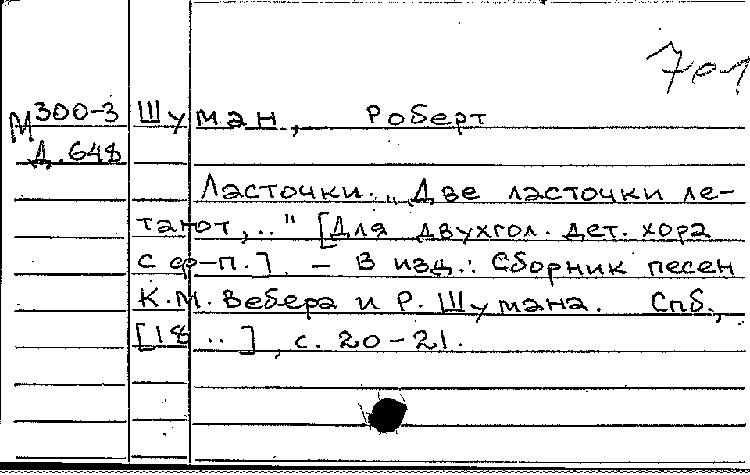 701
М 300-3 Шуман, Роберт
Д.648
Ласточки. „Две ласточки ле-
тают,.." [Для двухгол. дет. хора
с ф-п.]. – В изд.: Сборник песен
К.М. Вебера и Р. Шумана. Спб.,
[18 ..], с. 20-21.